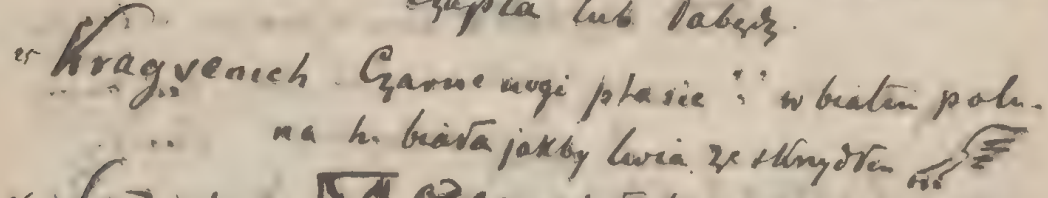 czapla lub łabędz.
25 Kragvenich. Czarne nogi ptasie w białem polu.
na h. biała jakby lwia ze skrzydłem